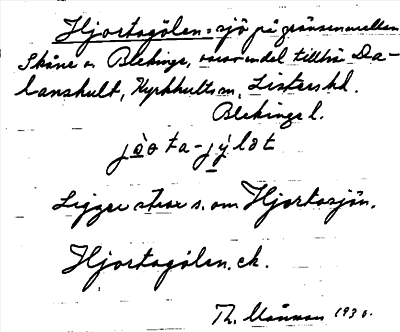 Hjortagölen = sjö på gränsen mellan
Skåne o. Blekinge, varav en del tillhör Da-
lanshult, Kyrkhults sn, Listers hd.
Blekinge l.
jo̱ota-jy̱lət
Ligger strax s. om Hjortasjön.
Hjortagölen. ek.
Th. 1930.